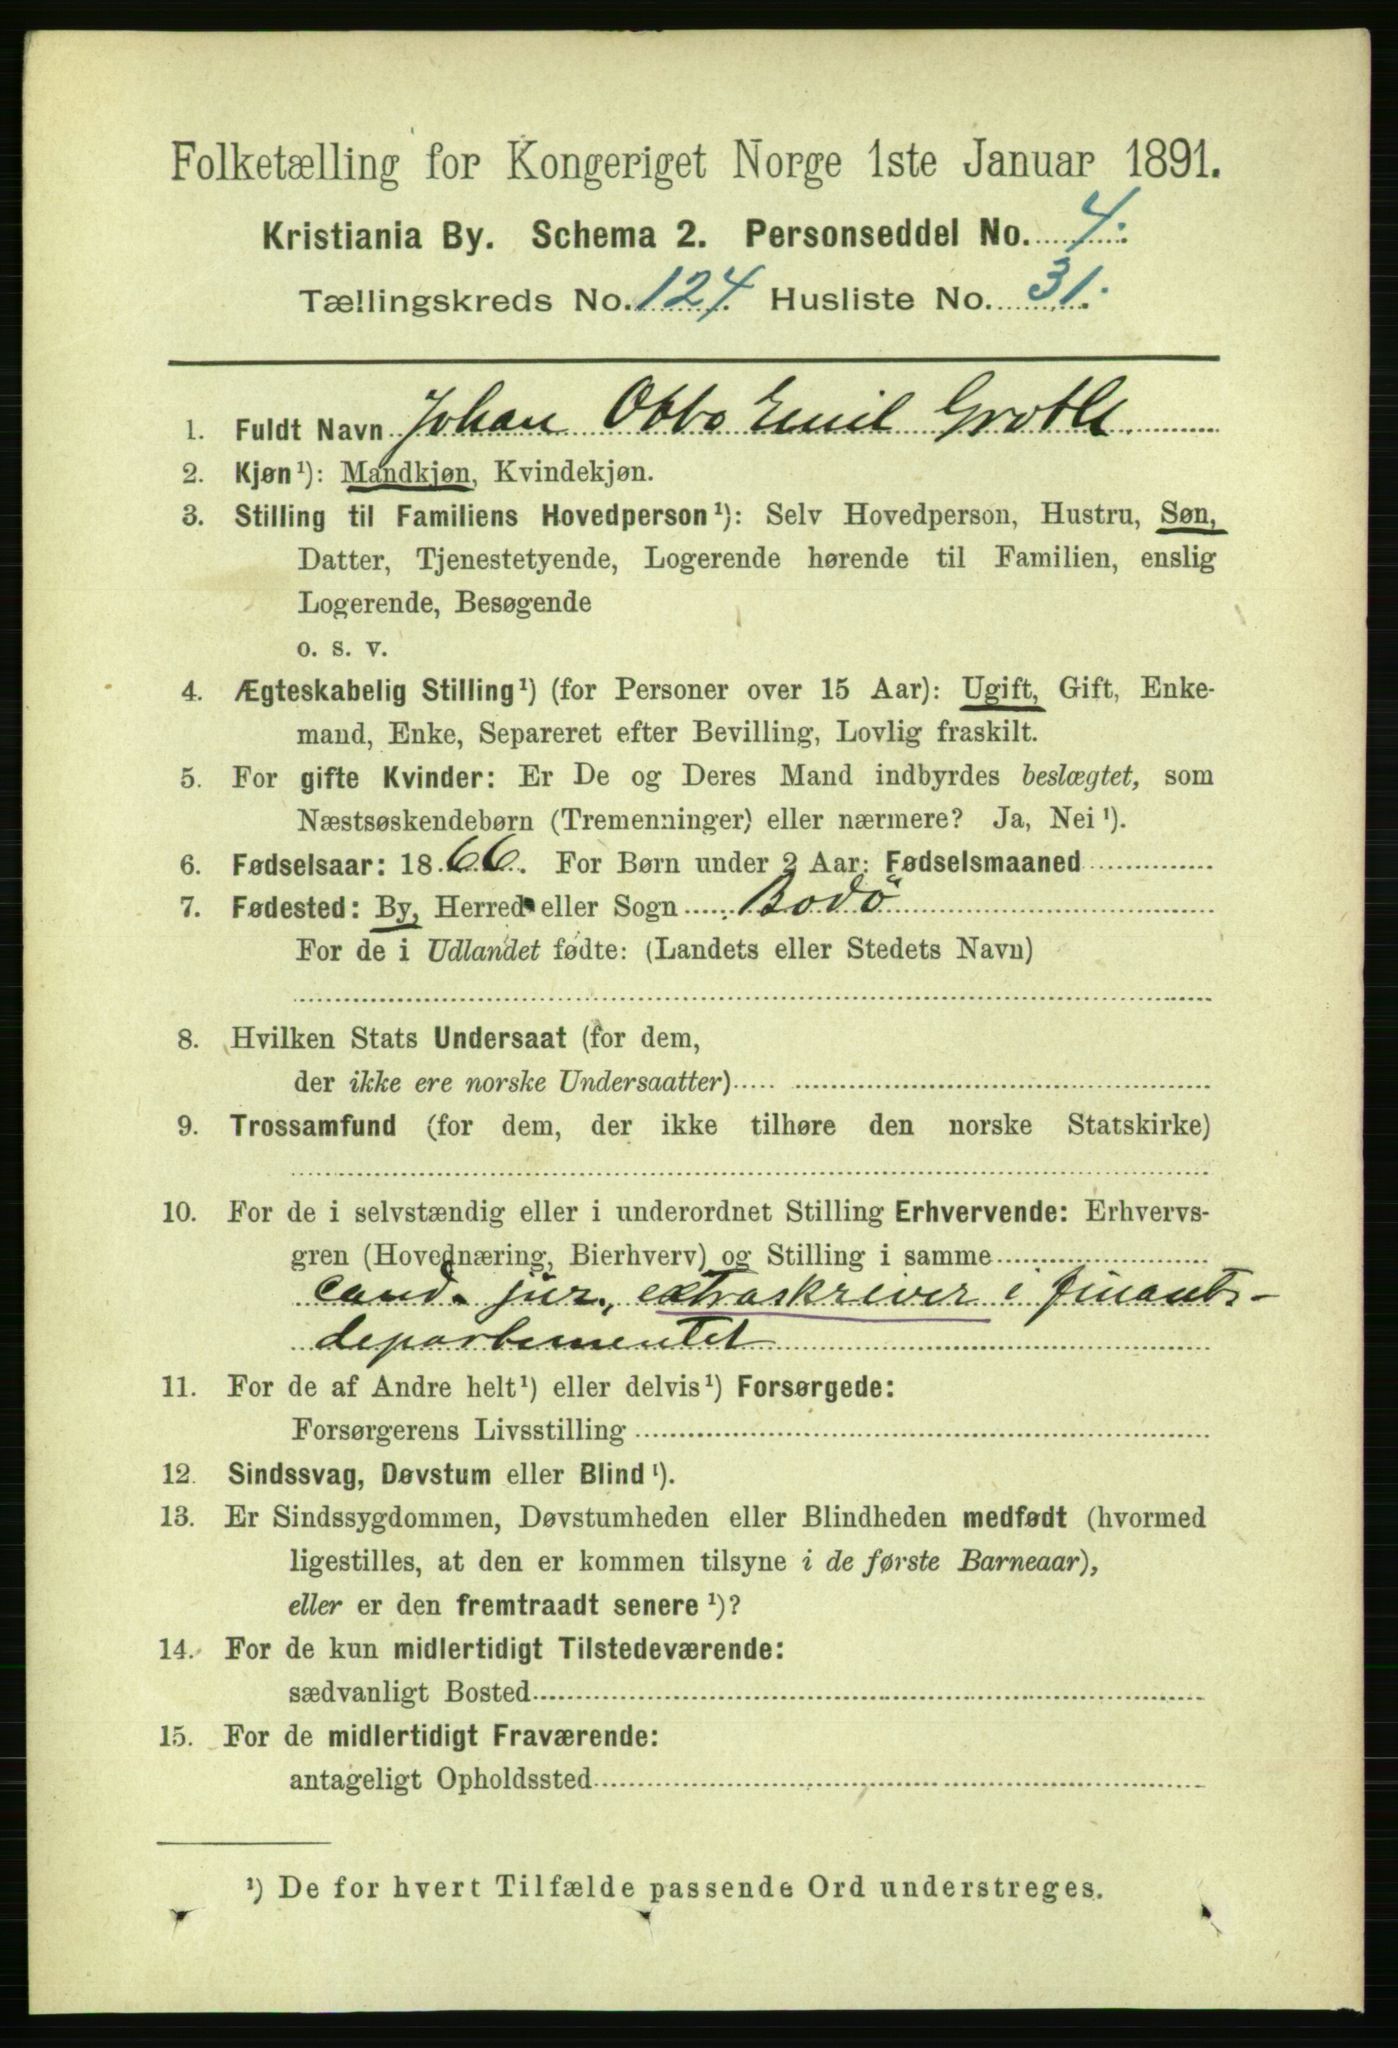 Folketælling for Kongeriget Norge 1ste Januar 1891.
Kristiania By. Schema 2. Personseddel No. 4.
Tællingskreds No. 124. Husliste No. 31.
1. Fuldt Navn Johan Otto Emil Groth
2. Kjøn¹): Mandkjøn, Kvindekjøn.
3. Stilling til Familiens Hovedperson¹): Selv Hovedperson, Hustru, Søn,
Datter, Tjenestetyende, Logerende hørende til Familien, enslig
Logerende, Besøgende
o. s. v.
4. Ægteskabelig Stilling¹) (for Personer over 15 Aar): Ugift, Gift, Enke-
mand, Enke, Separeret efter Bevilling, Lovlig fraskilt.
5. For gifte Kvinder: Er De og Deres Mand indbyrdes beslægtet, som
Næstsøskendebørn (Tremenninger) eller nærmere? Ja, Nei¹).
6. Fødselsaar: 1866. For Børn under 2 Aar: Fødselsmaaned
7. Fødested: By, Herred eller Sogn Bodö
For de i Udlandet fødte: (Landets eller Stedets Navn)
8. Hvilken Stats Undersaat (for dem,
der ikke ere norske Undersaatter)
9. Trossamfund (for dem, der ikke tilhøre den norske Statskirke)
10. For de i selvstændig eller i underordnet Stilling Erhvervende: Erhvervs-
gren (Hovednæring, Bierhverv) og Stilling i samme
cand. jur., extraskriver i finants-
departementet
11. For de af Andre helt¹) eller delvis¹) Forsørgede:
Forsørgerens Livsstilling
12. Sindssvag, Døvstum eller Blind¹).
13. Er Sindssygdommen, Døvstumheden eller Blindheden medfødt (hvormed
ligestilles, at den er kommen tilsyne i de første Barneaar),
eller er den fremtraadt senere¹)?
14. For de kun midlertidigt Tilstedeværende:
sædvanligt Bosted
15. For de midlertidigt Fraværende:
antageligt Opholdssted
¹) De for hvert Tilfælde passende Ord understreges.